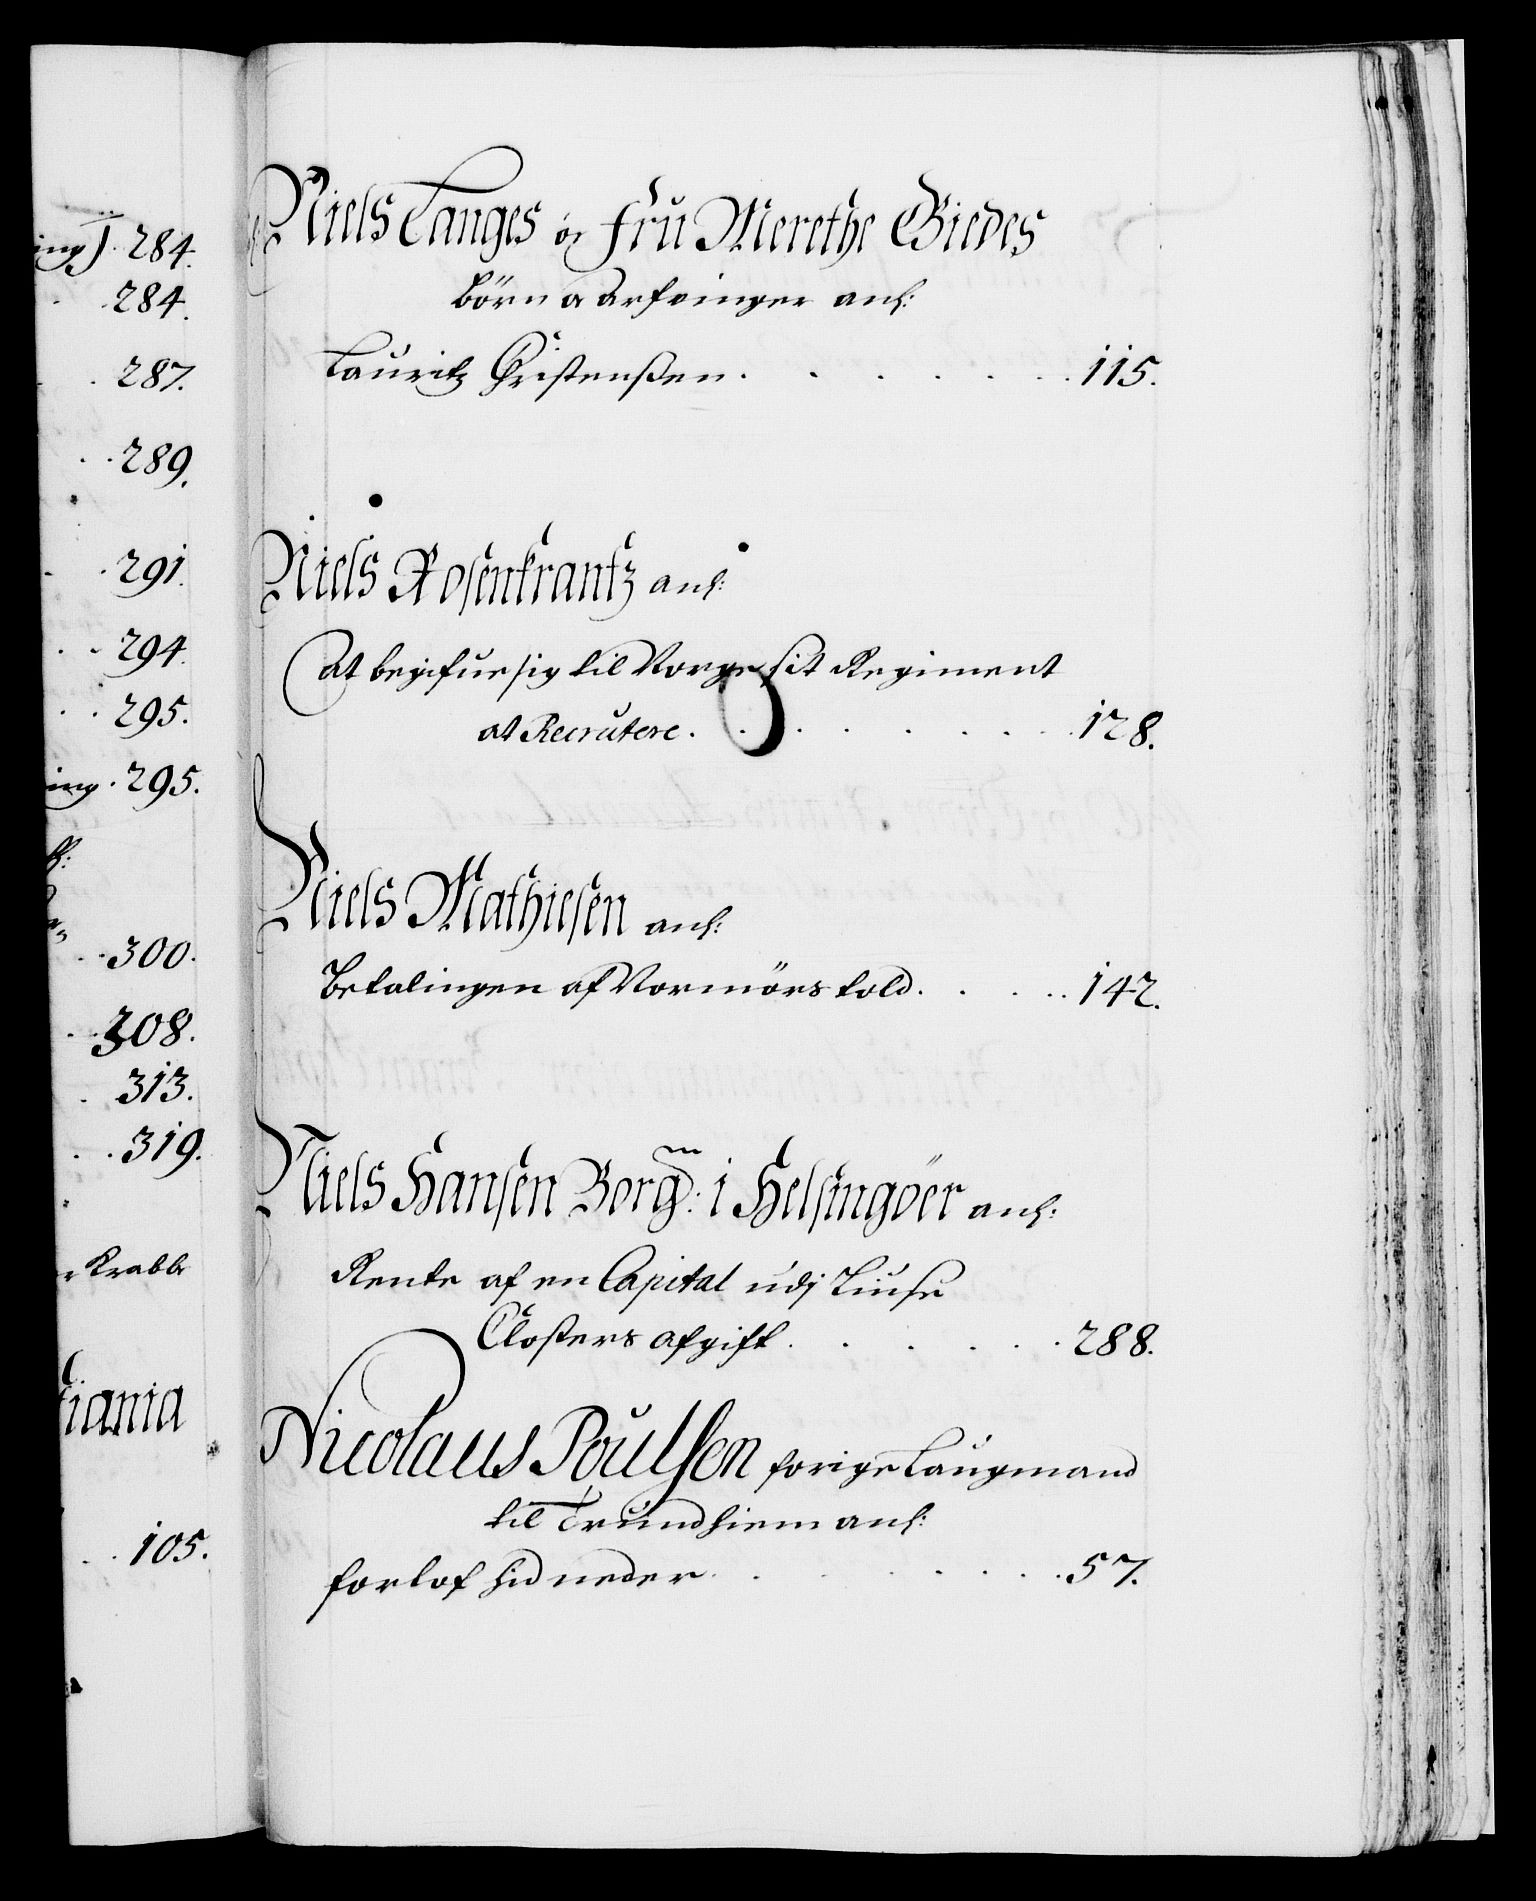 ing). 284.
284.
287.
289.
291.
294.
295.
ing. 295.
300.
308.
313.
319.
Krabbe
tiania
105.
Niels Langes oc Fru Merethe Giedes
börn oc arfvinger anl:
Lauritz Christenßen. . . . . . . 115.
Niels Rosenkrantz anl:
At begifue sig til Norge sit Regiment
at Recrutere. . . . . . . . 128.
Niels Mathiesen anl:
Betalingen af Normörs told. . . . . 142.
Niels Hansen Borgm: i Helsingöer anl:
Rente af en Capital udj Liuse
Closters afgift. . . . . . 288.
Nicolaus Poulsen forige Laugmand
til Trundhiem anl:
forlof hid neder. . . . . . . 57.